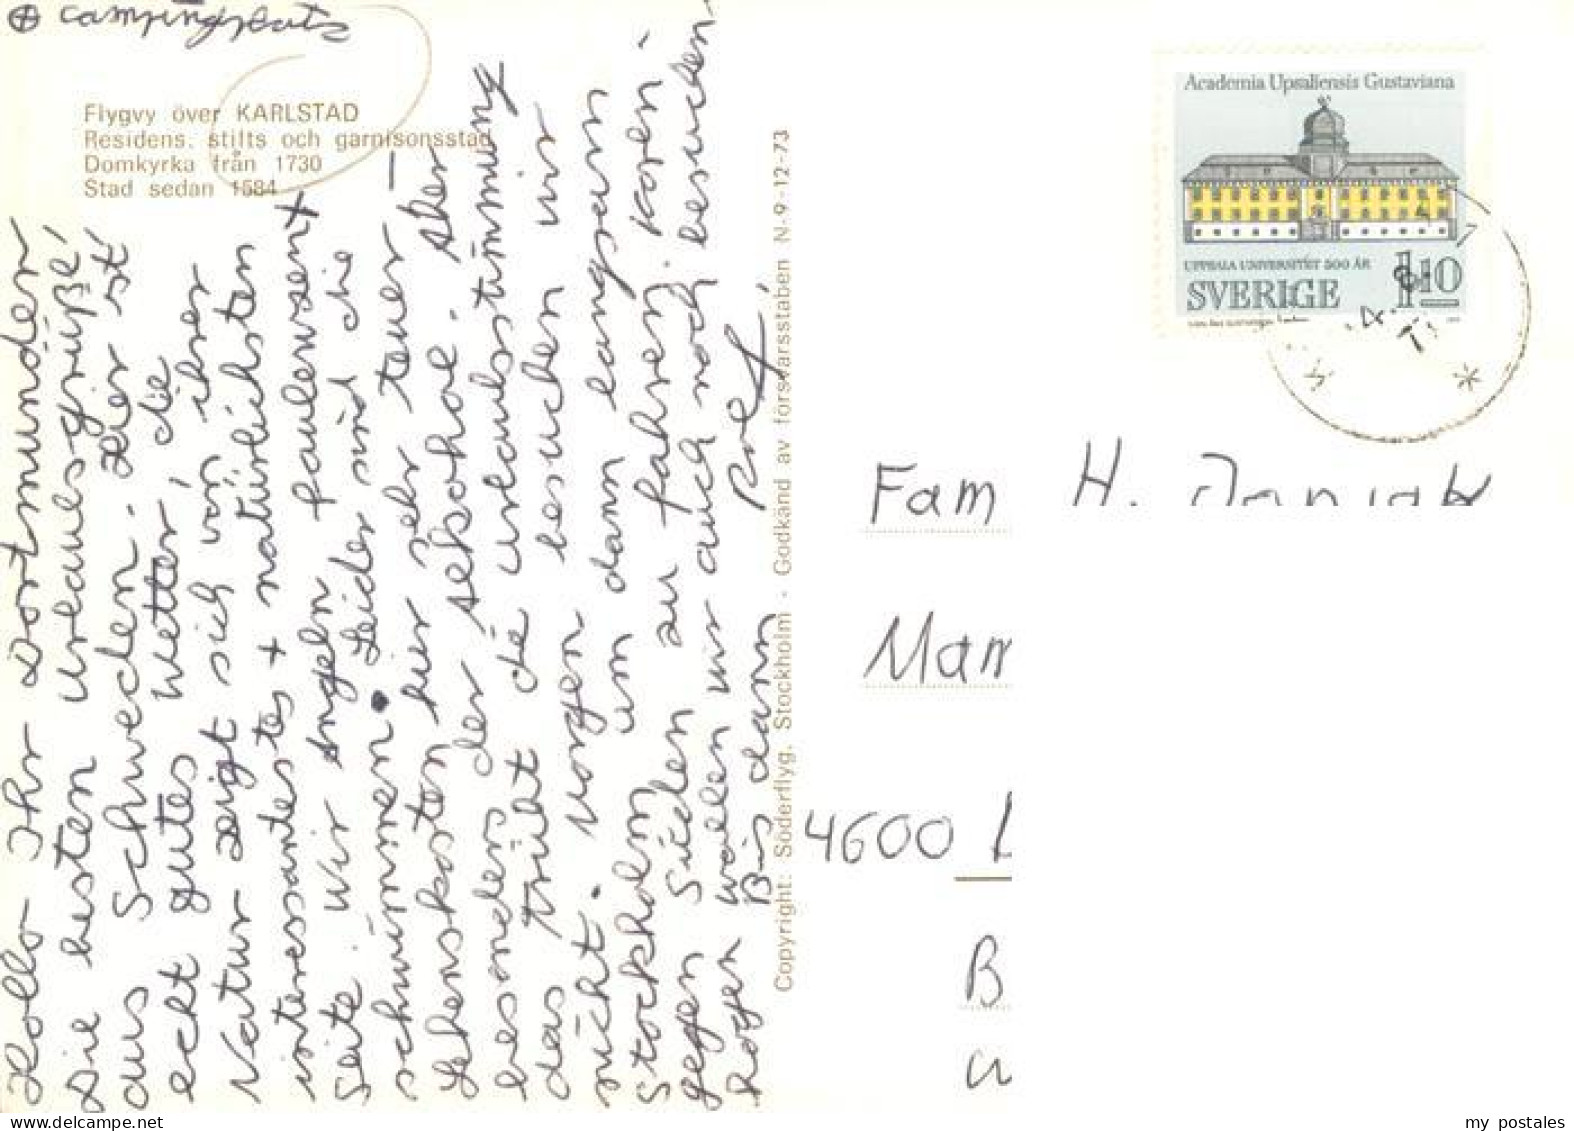 ⊕ Campingplatz
Flygvy över KARLSTAD
Residens, stifts och garnisonsstad
Domkyrka från 1730
Stad sedan 1584
Hallo Ihr Dortmunder
Die besten Urlaubsgrüße,
aus Schweden. Hier ist
echt gutes Wetter, die
Natur zeigt sich von ihrer
interessantes + natürlichsten
Seite. Wir angeln faulenzen +
schwimmen. Leider sind die
Lebenskosten hier sehr teuer –
besonders der Alkohol. Aber
das trübt die Urlaubsstimmung
nicht. Morgen besuchen wir
Stockholm um dann langsam
gegen Süden zu fahren. Kopen-
hagen wollen wir auch noch besuchen.
Bis dann
Copyright: Söderflyg, Stockholm - Godkänd av försvarsstaben N-9-12-73
Academia Upsaliensis Gustaviana
UPPSALA UNIVERSITET 500 ÅR
SVERIGE 1.10
Fam H.
Mam
4600 L
B